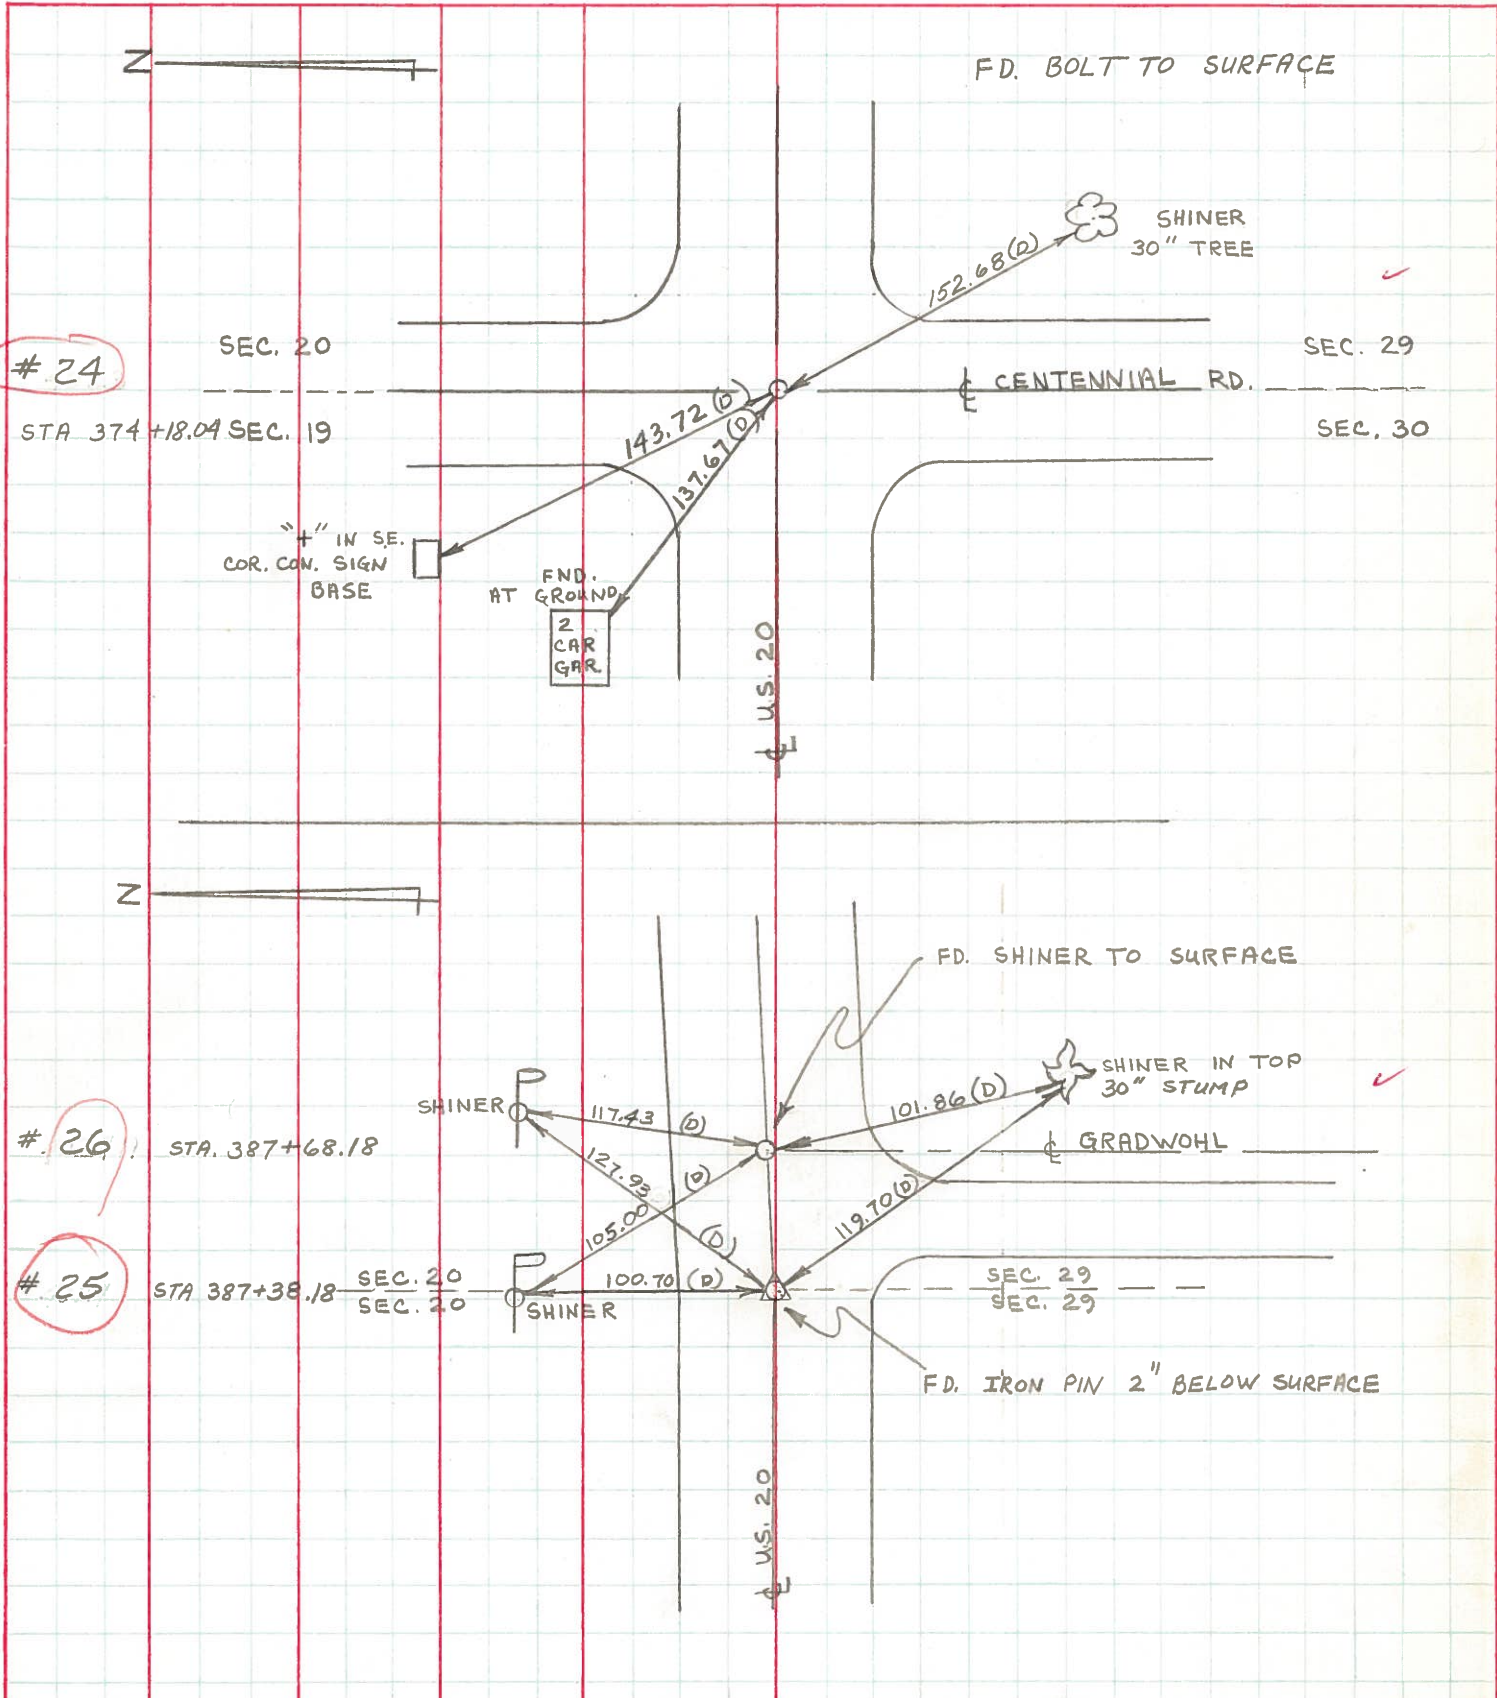 N
FD. BOLT TO SURFACE
SHINER
30" TREE
152.68 (D)
SEC. 20
SEC. 29
# 24
℄ CENTENNIAL RD.
STA 374+18.04 SEC. 19
SEC. 30
143.72 (D)
137.67 (D)
"+" IN S.E.
COR. CON. SIGN
BASE
FND.
AT GROUND
2
CAR
GAR.
℄ U.S. 20
N
FD. SHINER TO SURFACE
SHINER IN TOP
30" STUMP
SHINER
117.43 (D)
101.86 (D)
# 26
STA. 387+68.18
℄ GRADWOHL
127.93 (D)
105.00 (D)
119.70 (D)
# 25
STA 387+38.18
SEC. 20
SEC. 20
100.70 (D)
SEC. 29
SEC. 29
SHINER
FD. IRON PIN 2" BELOW SURFACE
℄ U.S. 20